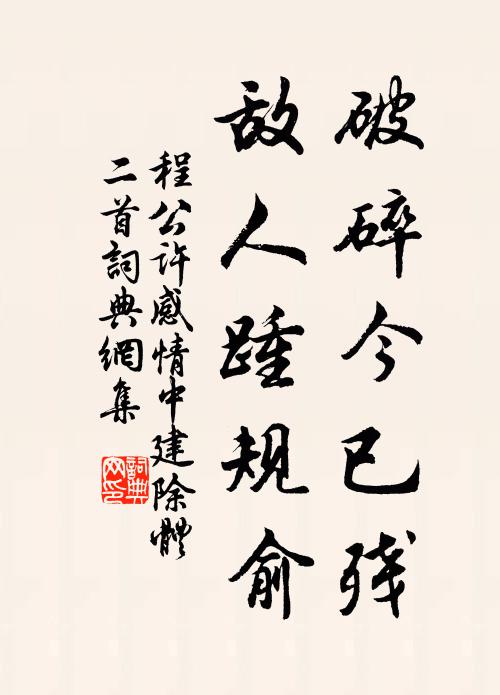 破碎今已残
敌人踵规俞
程公许感情中建除體
二首詞典網集
詞典网印